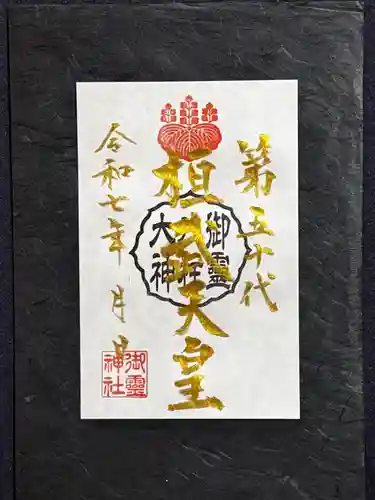 第五十代
桓武天皇
令和七年 月 日
御靈
大
神
御靈
神社